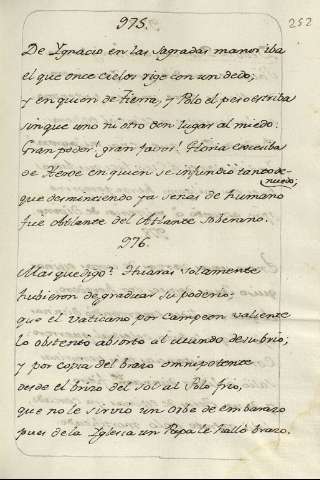 252
975.
De Ygnacio, en las sagradas manos iba
el que once cielos rige con un dedo;
y en quien de tierra, y Polo el peso estriba
sin que uno ni otro den lugar al miedo.
Gran poder! gran favor! Gloria excesiba
de Heroe en quien se infundió tanto de-
nuedo;
que desmintiendo ya señas de humano
fue Athlante del Athlante soberano.
976.
Mas que digo? Thiaras solamente
hubieron de graduar su poderio;
que el Vaticano por Campeon valiente
lo obstentó absorto al mundo de su brio;
y por copia del brazo omnipotente
desde el brizo del sol al Polo frio,
que no le sirvió un Orbe de embarazo
pues de la Yglesia un Papa le halló brazo.